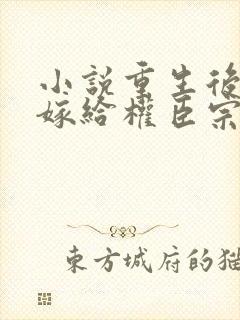 小説重生後
嫁給權臣宗
東方城府的猫